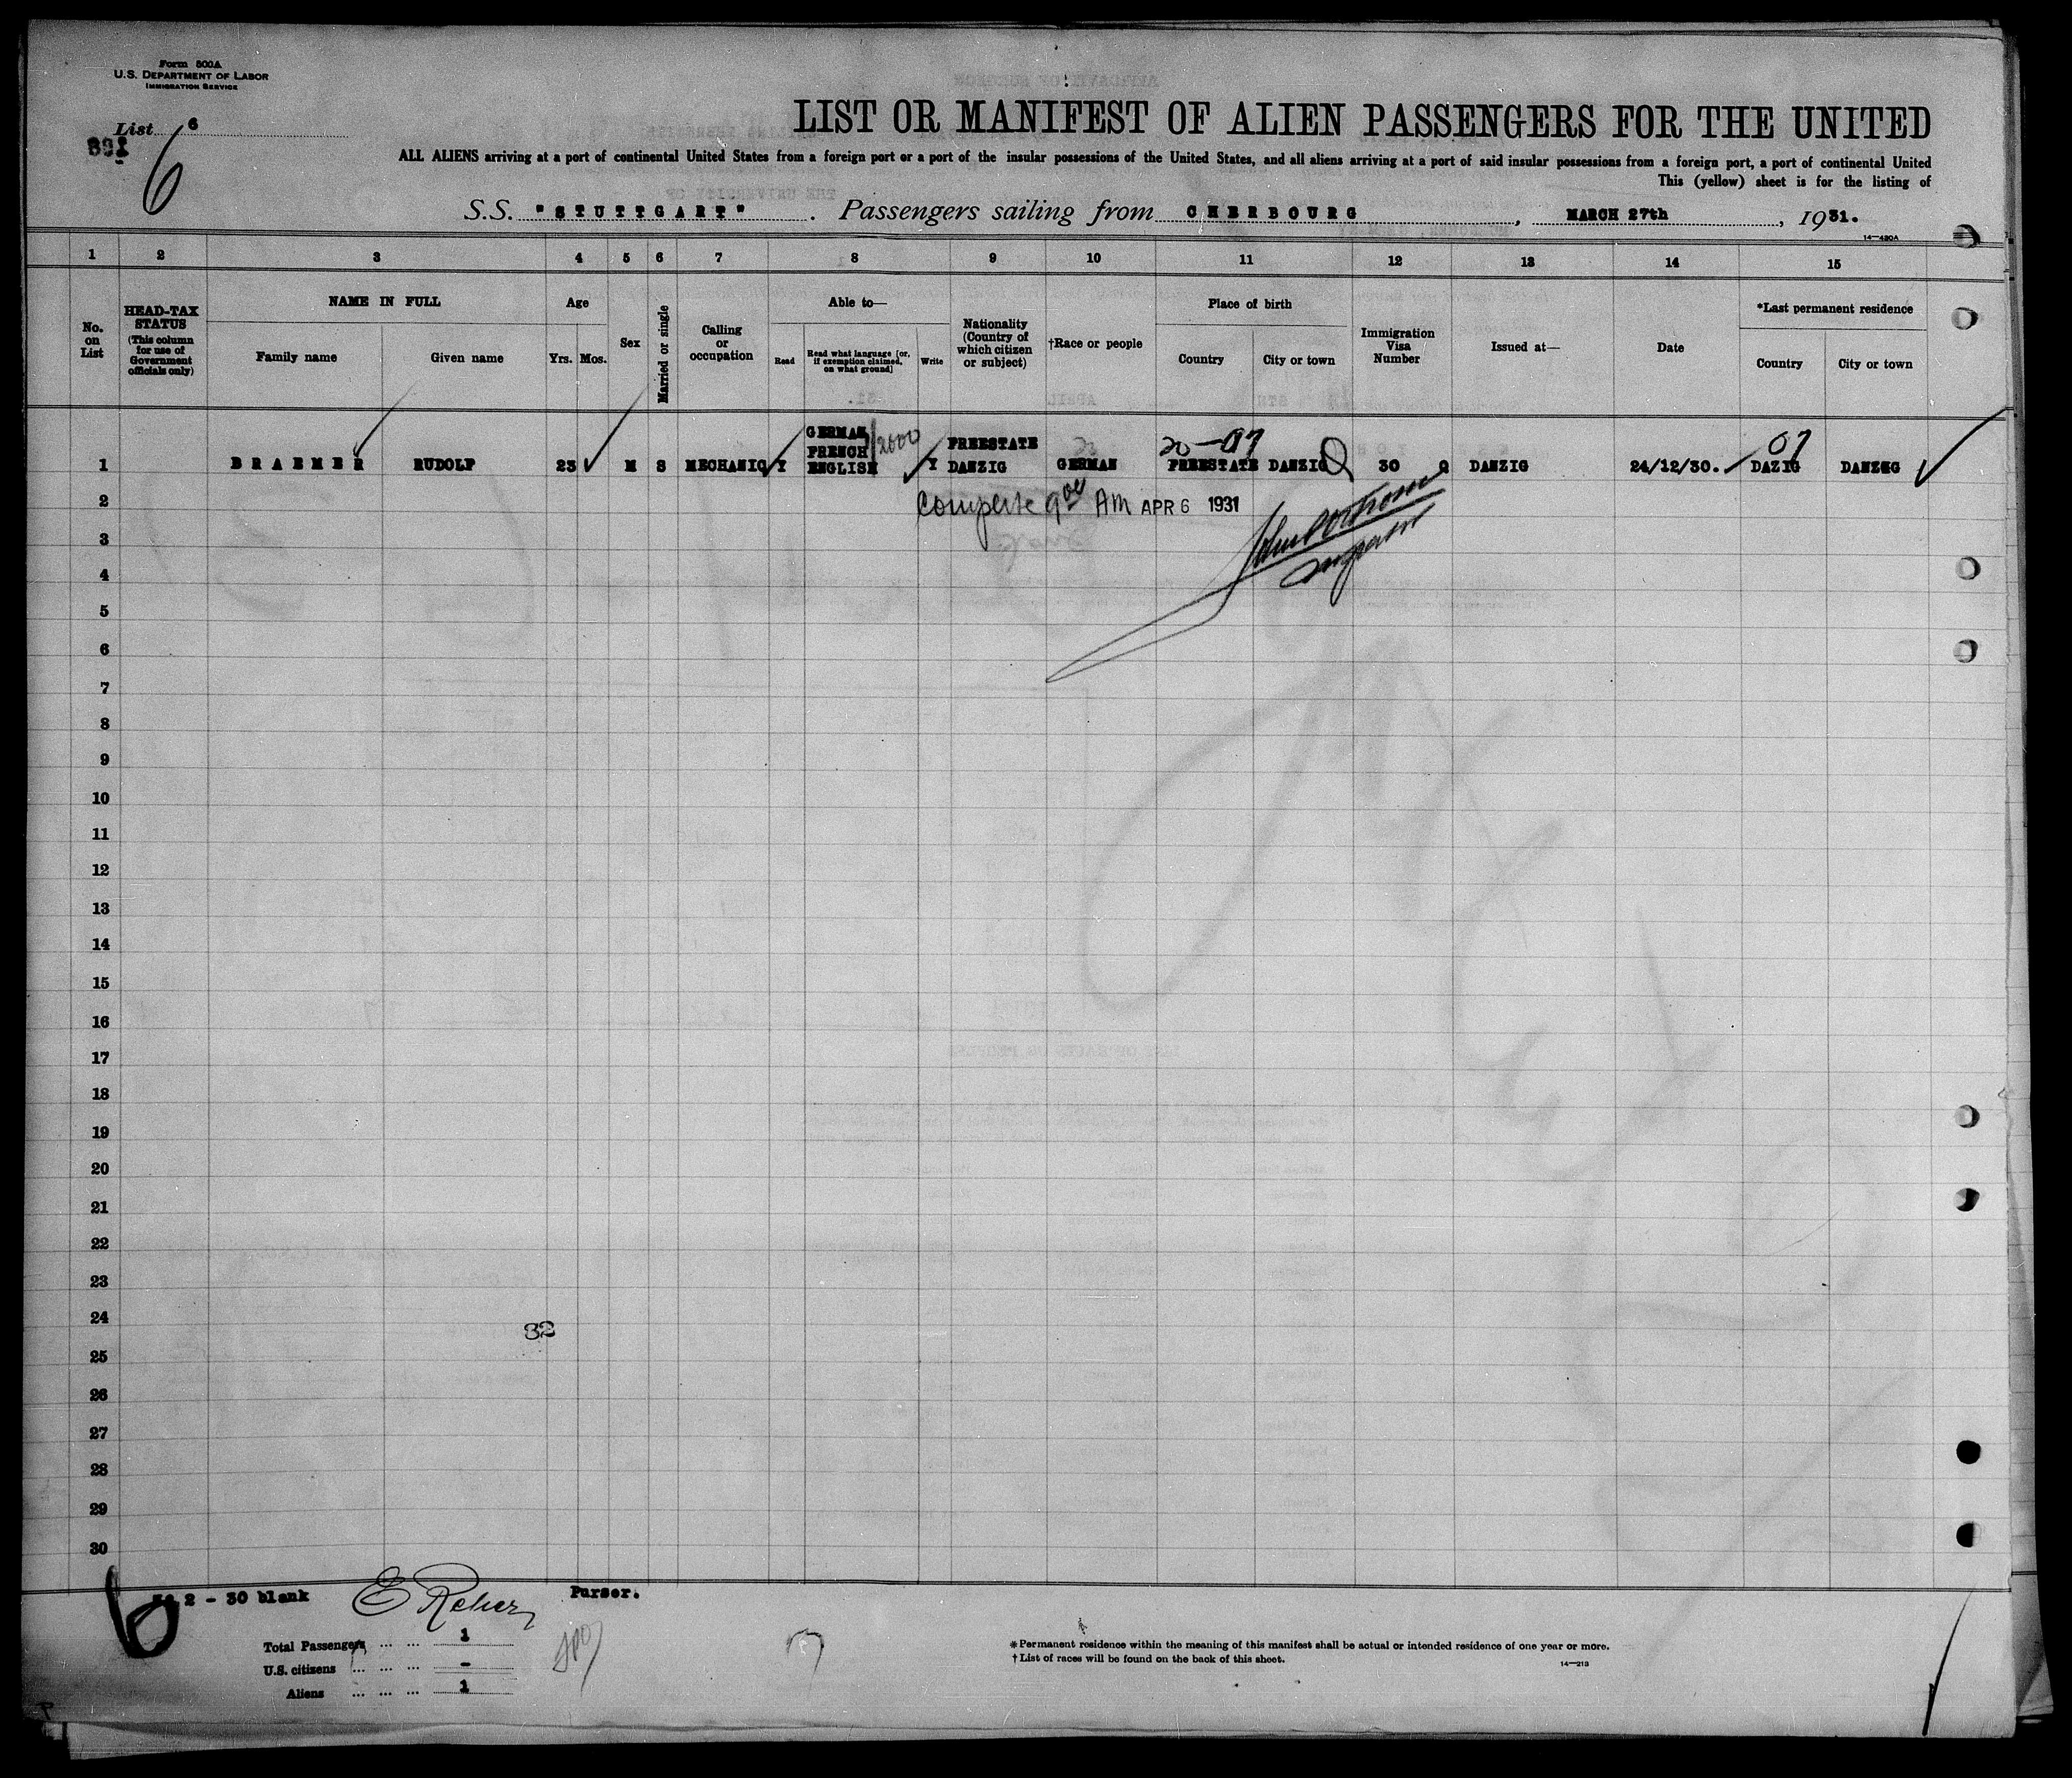 Form 500A
U.S. DEPARTMENT OF LABOR
IMMIGRATION SERVICE
List 6
6
LIST OR MANIFEST OF ALIEN PASSENGERS FOR THE UNITED
ALL ALIENS arriving at a port of continental United States from a foreign port or a port of the insular possessions of the United States, and all aliens arriving at a port of said insular possessions from a foreign port, a port of continental United
This (yellow) sheet is for the listing of
S.S. "STUTTGART". Passengers sailing from CHERBOURG, MARCH 27th, 1931.
14—420A
1 2 3 4 5 6 7 8 9 10 11 12 13 14 15
No. on List
HEAD-TAX STATUS (This column for use of Government officials only)
NAME IN FULL
Family name Given name
Age
Yrs. Mos.
Sex
Married or single
Calling or occupation
Able to—
Read
Read what language [or, if exemption claimed, on what ground]
Write
Nationality (Country of which citizen or subject)
†Race or people
Place of birth
Country City or town
Immigration Visa Number
Issued at—
Date
*Last permanent residence
Country City or town
1 BRAEMER RUDOLF 23 M S MECHANIC Y GERMAN FRENCH ENGLISH Y FREESTATE DANZIG GERMAN FREESTATE DANZIG 30 Q DANZIG 24/12/30. DAZIG DANZEG
20 — 07
07
2 9 00 AM APR 6 1931
3
4
5
6
7
8
9
10
11
12
13
14
15
16
17
18
19
20
21
22
23
24
32
25
26
27
28
29
30
6
2 - 30 blank E Reher Purser.
Total Passengers ... ... 1
U.S. citizens ... ... ... -
Aliens ... ... ... 1
*Permanent residence within the meaning of this manifest shall be actual or intended residence of one year or more.
†List of races will be found on the back of this sheet.
14—213